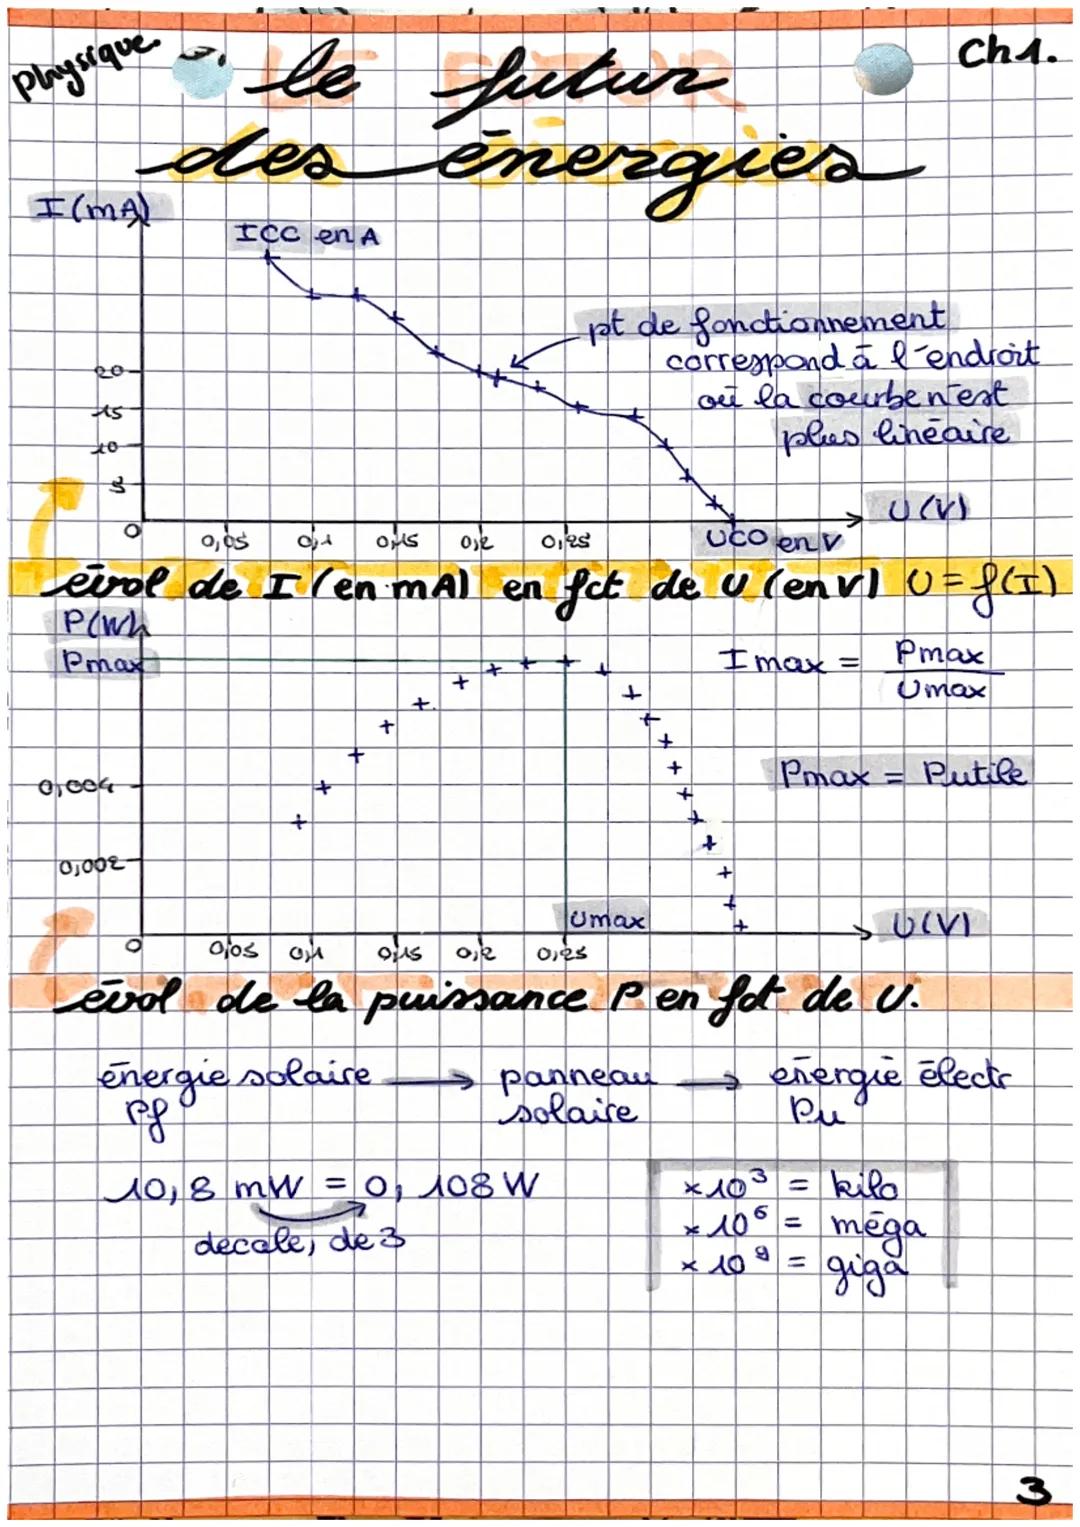 Physique
Ch1.
LE FUTUR
le futur
des énergies
I(mA)
ICC en A
pt de fonctionnement
correspond à l'endroit
où la courbe n'est
plus linéaire
20
15
10
5
0
0,05 0,1 0,15 0,2 0,25
UCO en V
U(V)
évol de I (en mA) en fct de U (en V) U = f(I)
P(W)
Pmax
Imax = Pmax
Umax
Pmax = Putile
0,004
0,002
Umax
U(V)
0
0,05 0,1 0,15 0,2 0,25
évol de la puissance P en fct de U.
énergie solaire → panneau → énergie électr
Pf solaire Pu
10,8 mW = 0,108 W
decale, de 3
×10³ = kilo
×10⁶ = méga
×10⁹ = giga
3